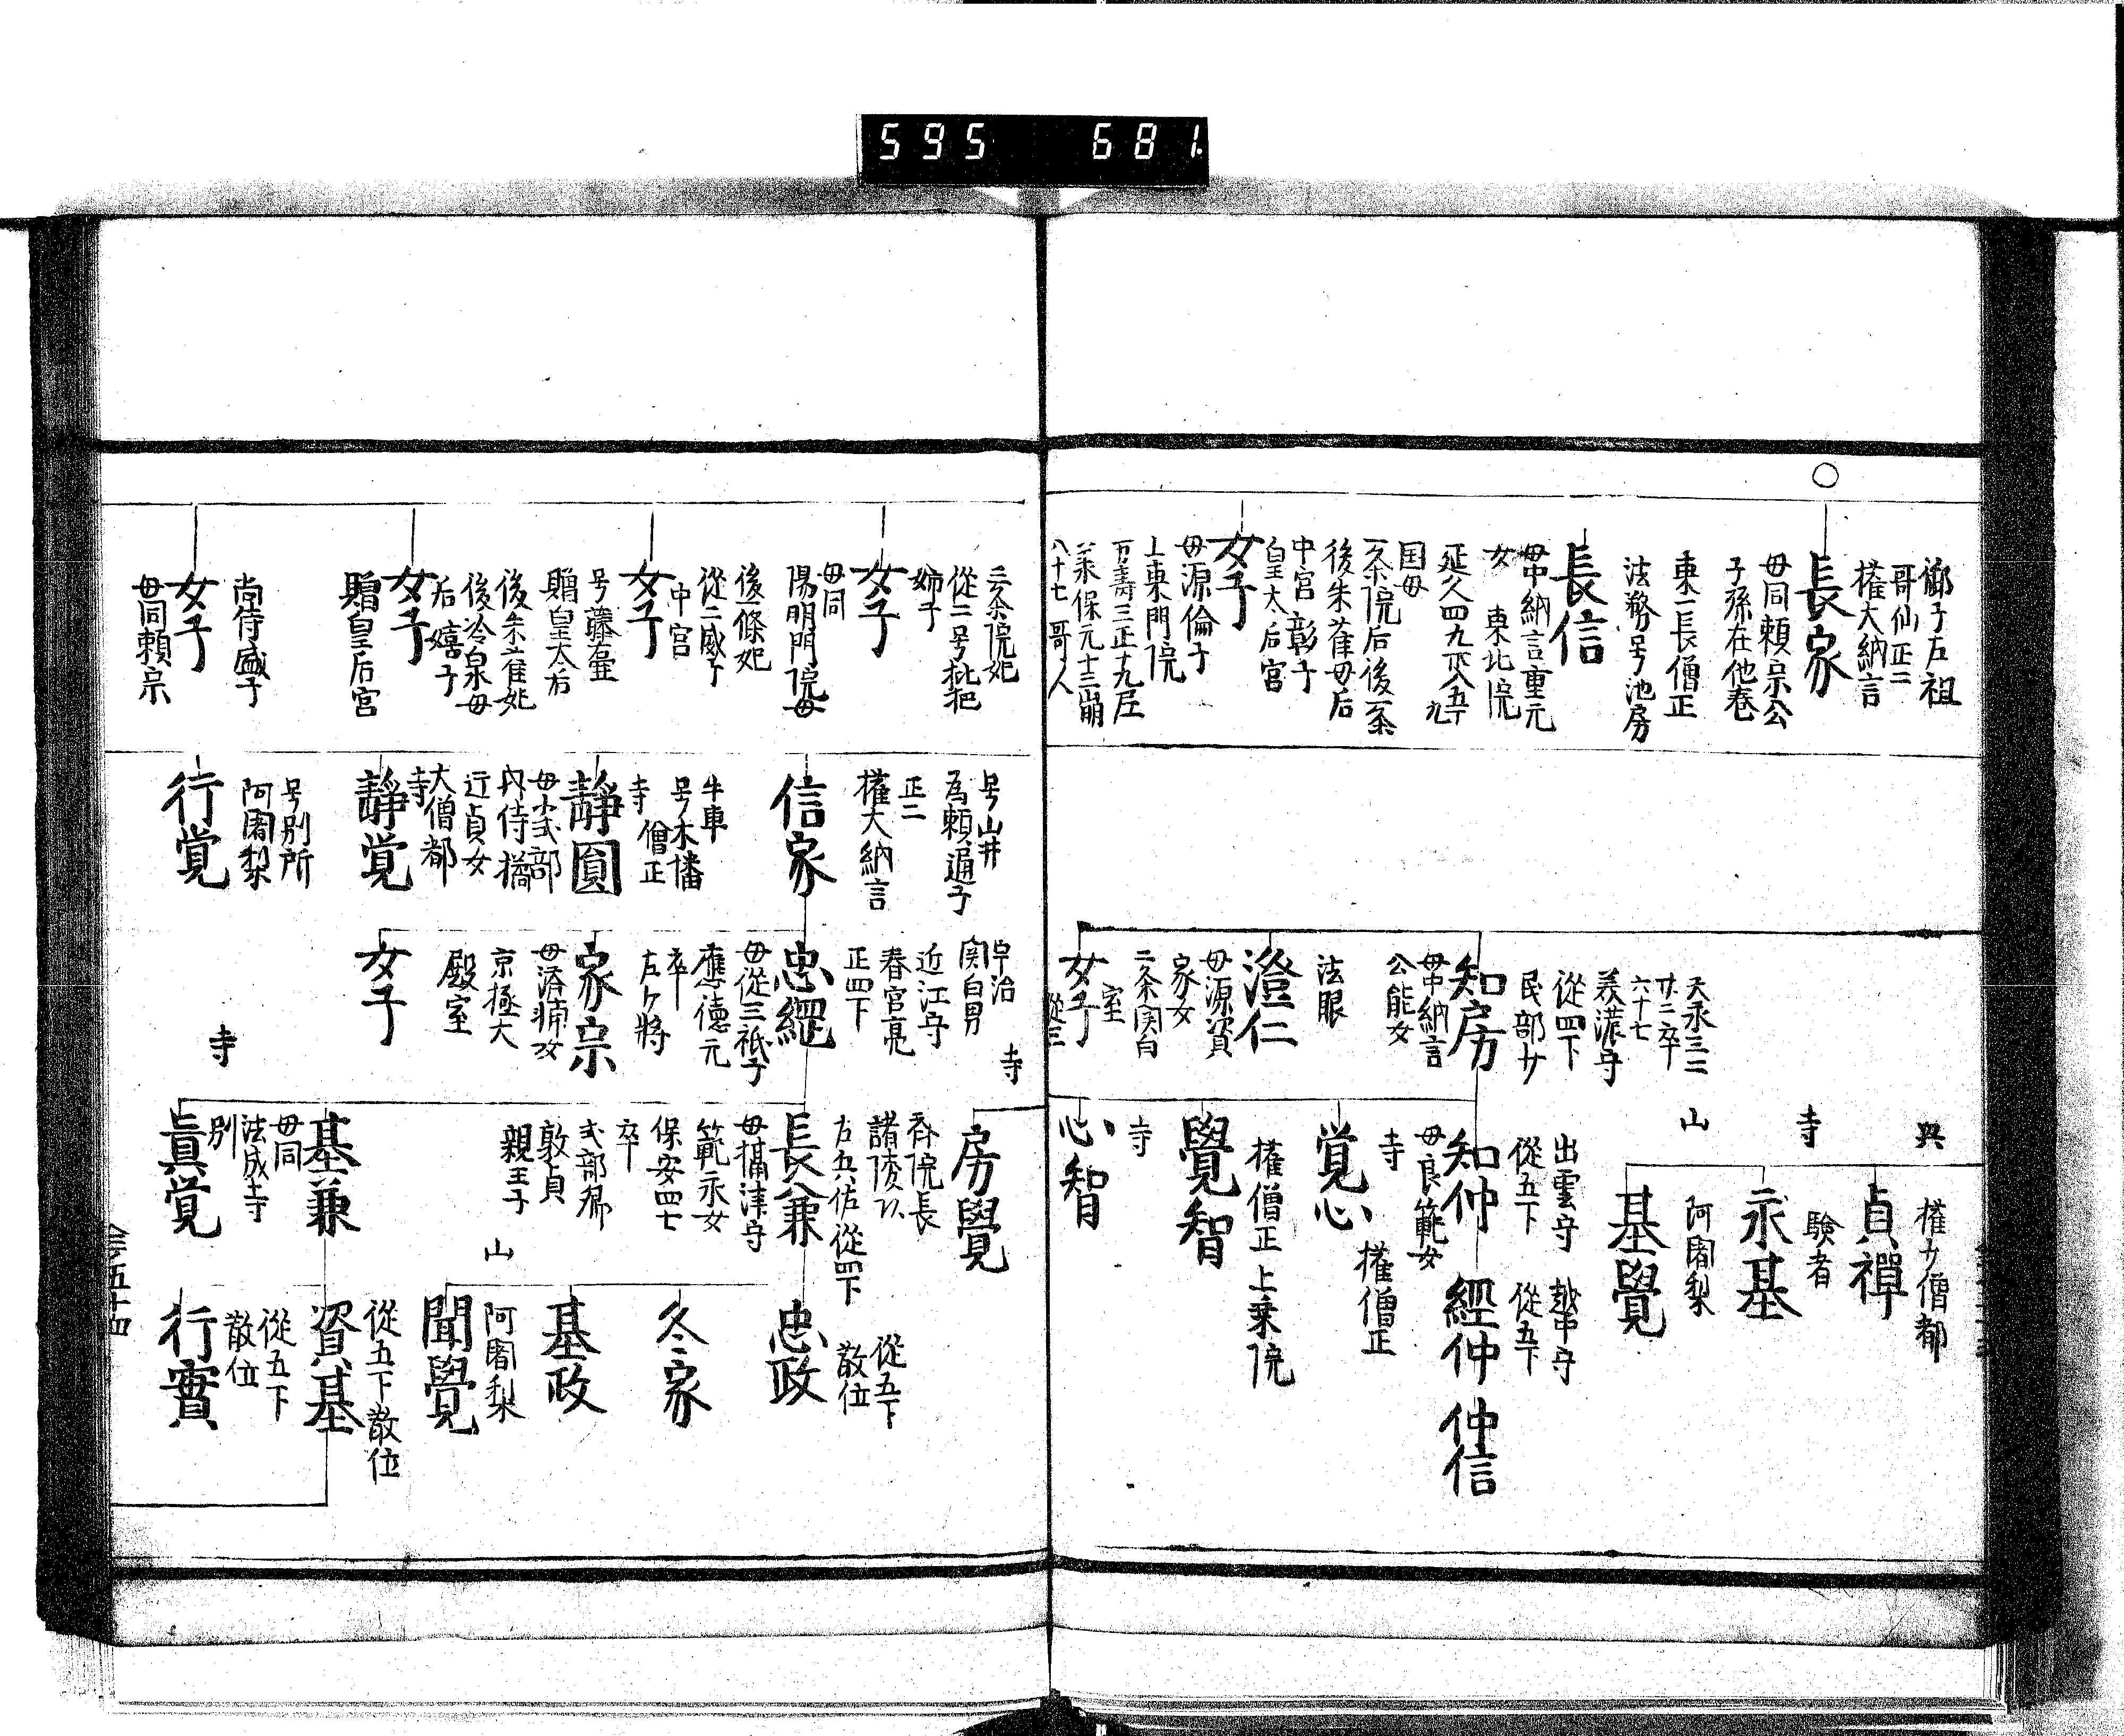 595 681
御子左祖
哥仙正二
権大納言
長家
母同頼宗公
子孫在他巻
東一長僧正
法務号池房
長信
母中納言重元
女 東北院
国母
一条院后後一条
後朱雀母后
中宮彰子
皇太后宮
女子
母源倫子
上東門院
八十七 哥人
天承三二
廿二卒
六十七
美濃守
従四下
民部少
知房
母中納言
公能女
法眼
澄仁
母源資
家女
二条関白
室
女子
従三
興
権少僧都
貞禅
寺
験者
永基
山
阿闍梨
基覺
出雲守
従五下
知仲
母良範女
越中守
従五下
經仲
仲信
寺
権僧正
覚心
権僧正上乗院
覺智
寺
心智
三条院妃
従二号枇杷
姉子
女子
母同
陽明門院母
後一條妃
従二威子
中宮
女子
号藤壺
贈皇太后
後朱雀妃
後冷泉母
后嬉子
女子
贈皇后宮
尚侍盛子
女子
母同頼宗
号山井
為頼通子
正二
権大納言
信家
牛車
号木幡
僧正
寺
静圓
母小式部
内侍
大僧都
寺
静覚
号別所
阿闍梨
行覚
宇治
関白男
近江守
春宮亮
正四下
忠綱
母従三祇子
應徳元
卒
左少将
家宗
京極大
殿室
女子
寺
房覺
斉院長
左兵佐従四下
長兼
母摂津守
範永女
保安四七
卒
式部卿
敦貞
親王子
基兼
母同
法成寺
別
寺
眞覚
従五下
散位
忠政
冬家
基政
山
阿闍梨
聞覺
従五下散位
資基
従五下
散位
行實